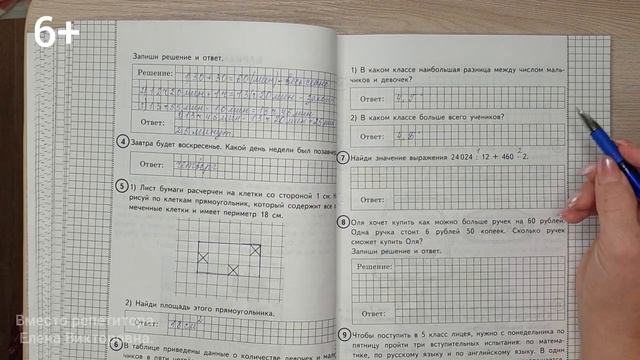 6+
Запиши решение и ответ.
Решение:
Ответ:
25 минут
4 Завтра будет воскресенье. Какой день недели был позавчера
Ответ: четверг
5 1) Лист бумаги расчерчен на клетки со стороной 1 см. Н
рисуй по клеткам прямоугольник, который содержит все
меченные клетки и имеет периметр 18 см.
2) Найди площадь этого прямоугольника.
Ответ:
6 В таблице приведены данные о количестве девочек и маль
чиков в пяти
1) В каком классе наибольшая разница между числом маль-
чиков и девочек?
Ответ:
2) В каком классе больше всего учеников?
Ответ:
7 Найди значение выражения 24 024 : 12 + 460 · 2.
8 Оля хочет купить как можно больше ручек на 60 рублей.
Одна ручка стоит 6 рублей 50 копеек. Сколько ручек
сможет купить Оля?
Запиши решение и ответ.
Решение:
Ответ:
9 Чтобы поступить в 5 класс лицея, нужно с понедельника по
пятницу пройти три вступительных испытания: по мате-
матике, по русскому языку и по английскому языку. В один
Вместо репетитора
Елена Викт